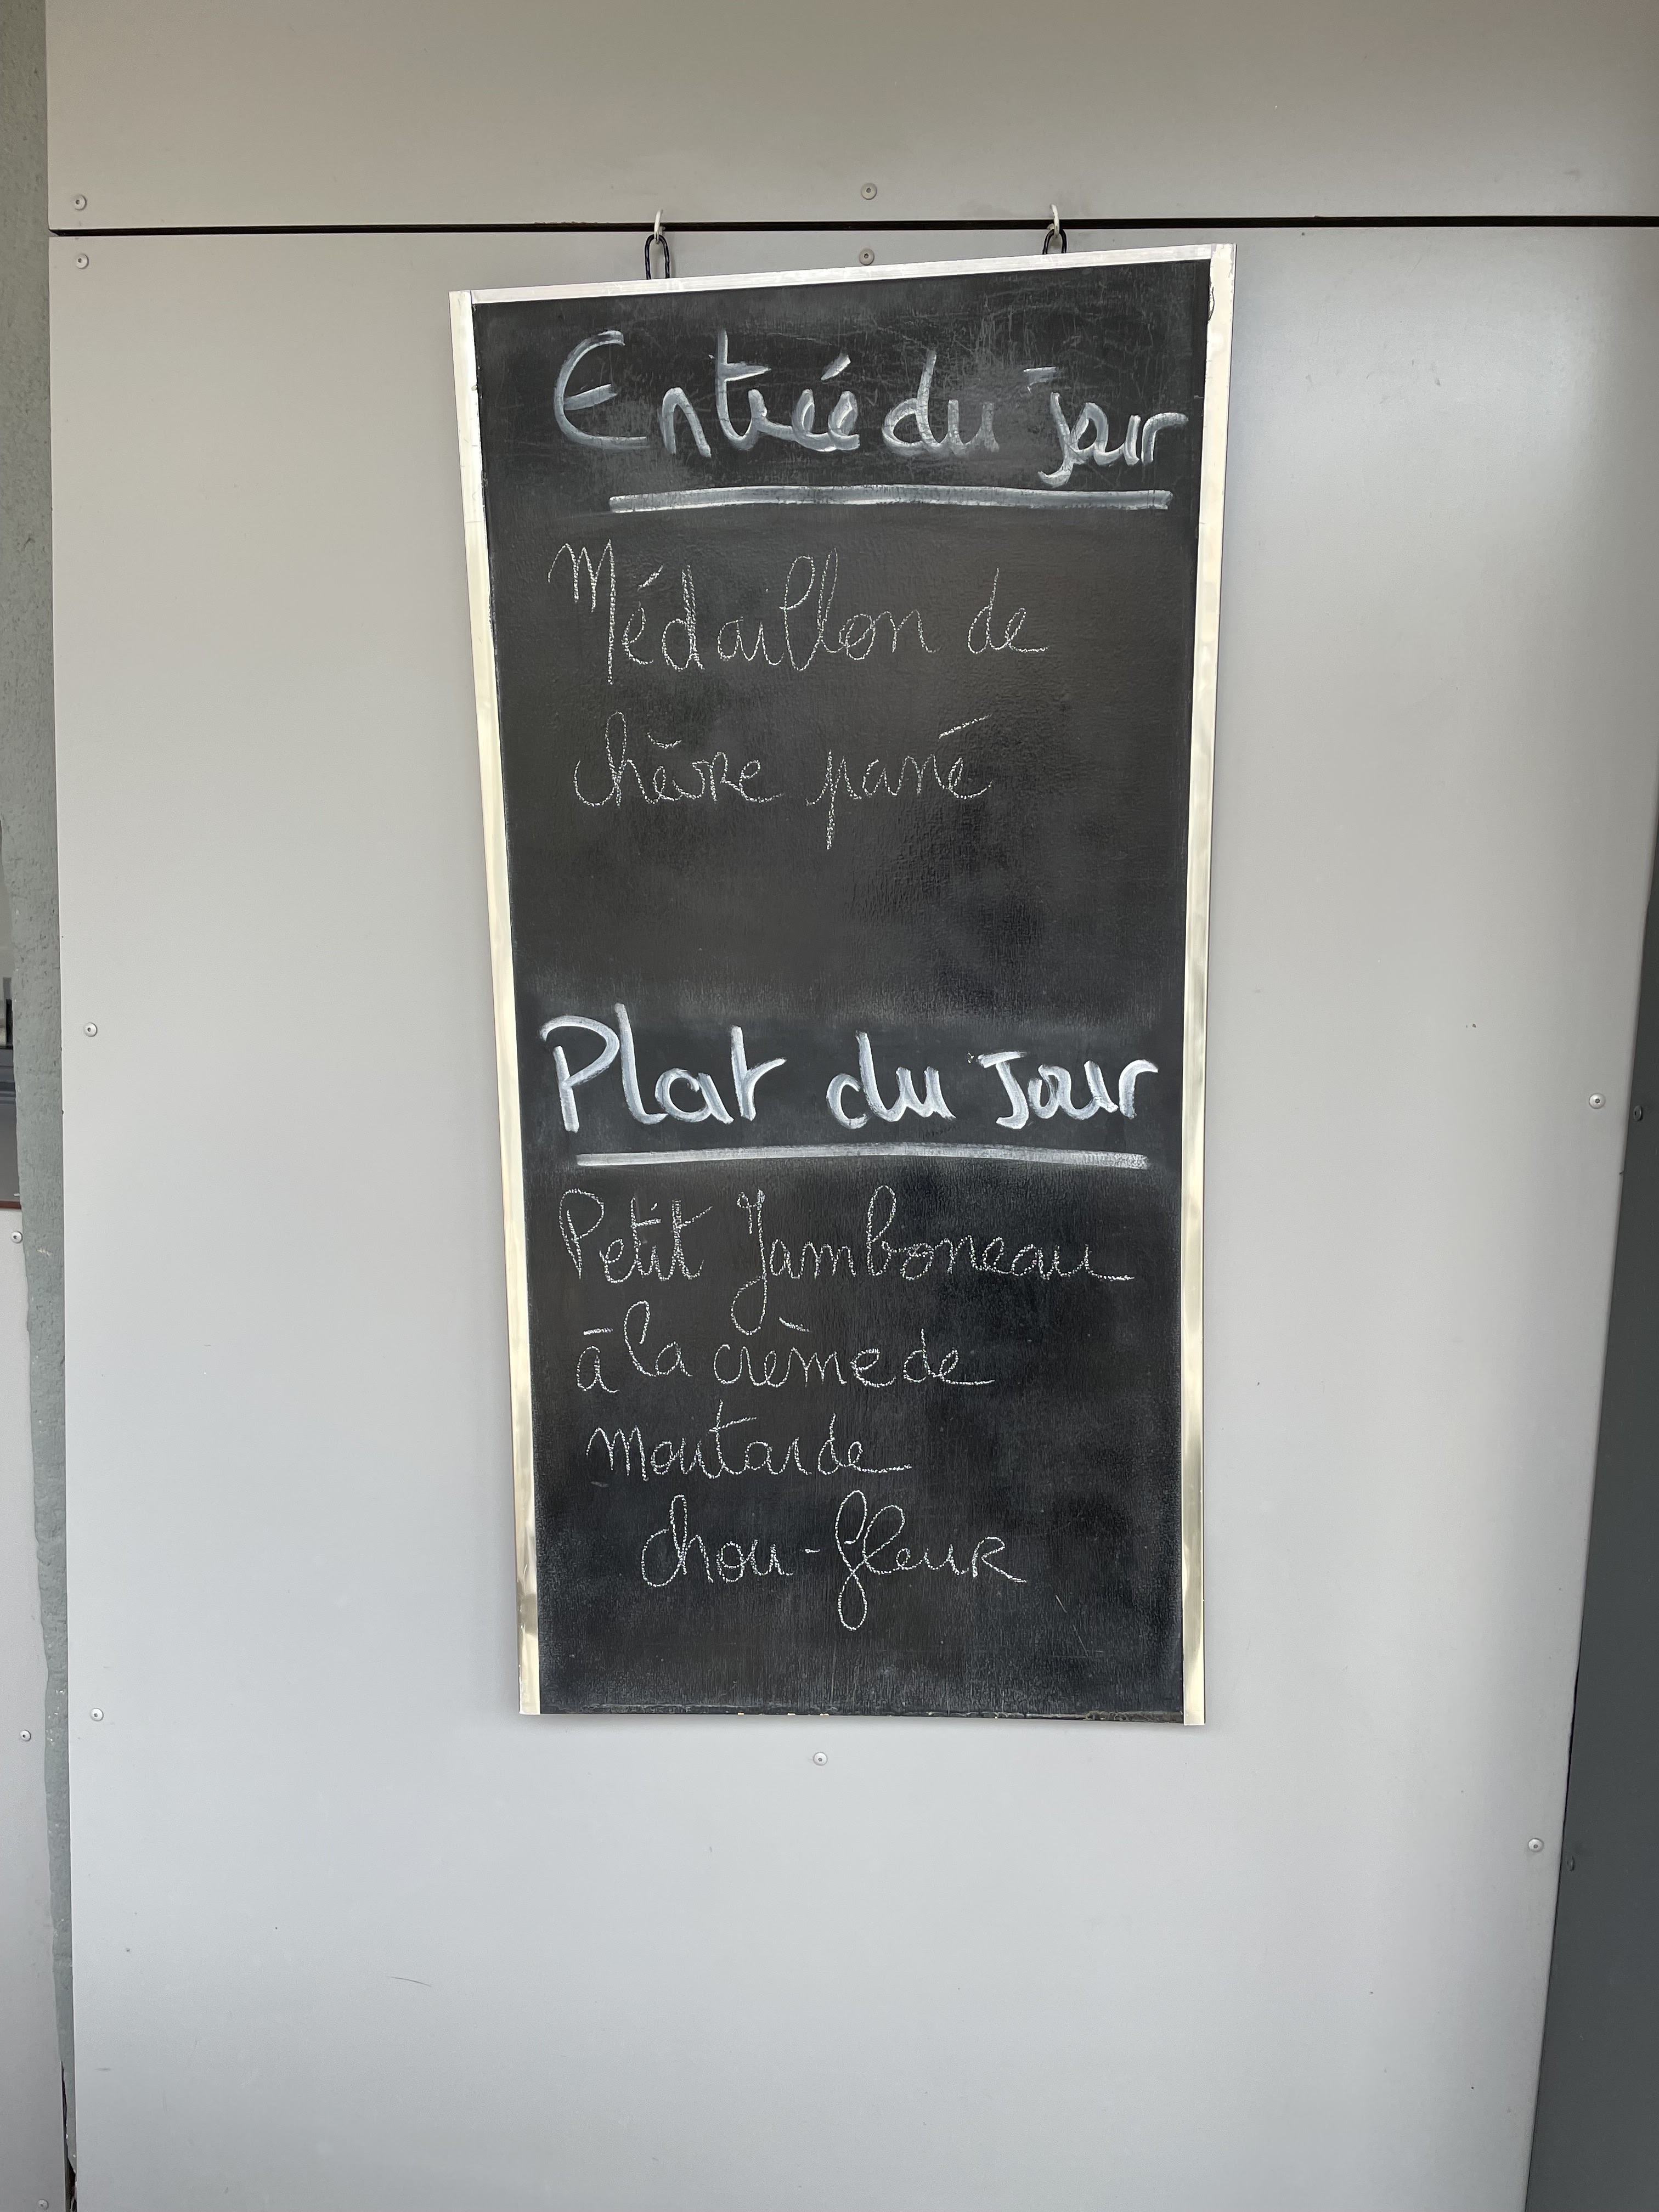 Entrée du jour
Médaillon de
chèvre pané
Plat du Jour
Petit Jamboneau
à la crème de
moutarde
chou-fleur